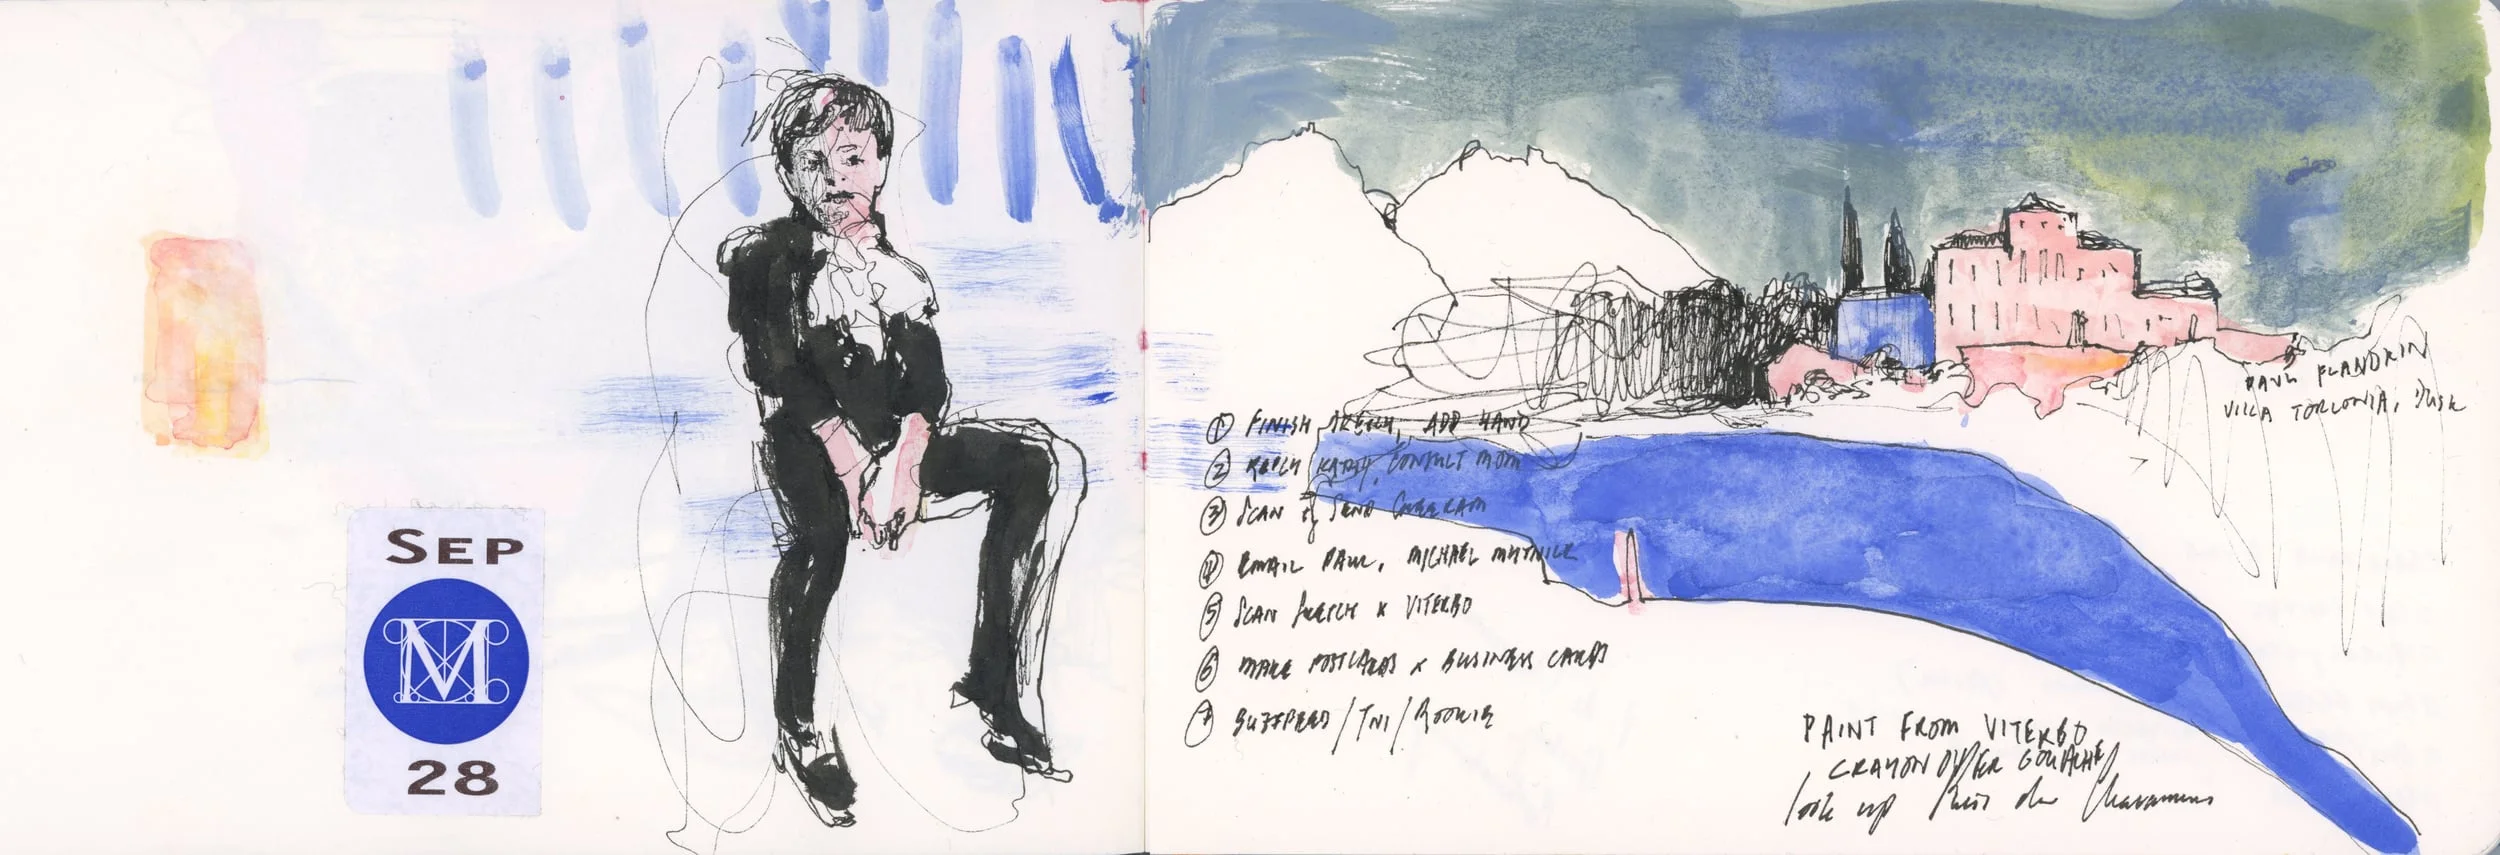 SEP
M
28
① FINISH SKETCH, ADD HAND
② REPLY KATHY, CONSULT MOM
③ SCAN & SEND
④ EMAIL PAUL, MICHAEL
⑤ SCAN SKETCH x VITERBO
⑥ MAKE POSTCARDS x BUSINESS CARDS
⑦ BUZZFEED/TNI/ROOKIE
PAUL FLANDRIN
VILLA TORLONIA, DUSK
PAINT FROM VITERBO
CRAYON OVER GOUACHE
look up Puvis de Chavannes